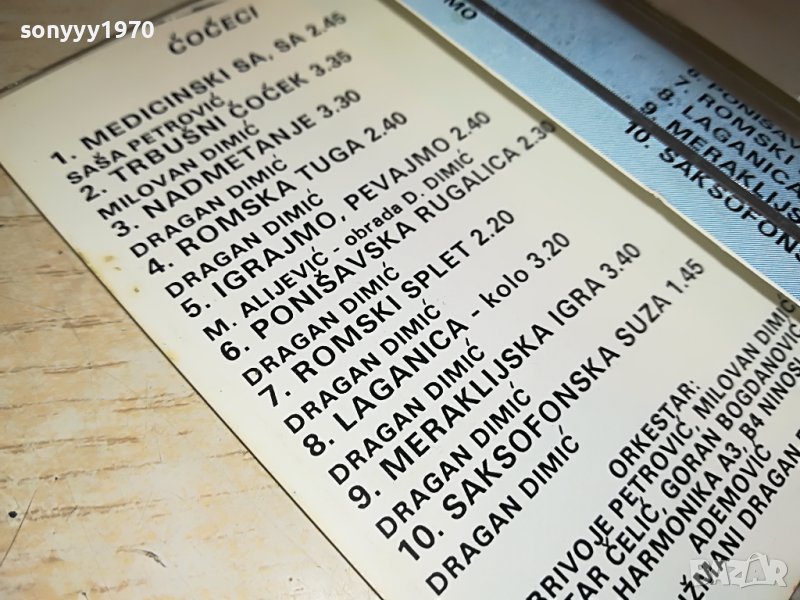 sonyyy1970
ČOČECI
1. MEDICINSKI SA, SA 2.45
SAŠA PETROVIĆ
2. TRBUŠNI ČOČEK 3.35
MILOVAN DIMIĆ
3. NADMETANJE 3.30
DRAGAN DIMIĆ
4. ROMSKA TUGA 2.40
DRAGAN DIMIĆ
5. IGRAJMO, PEVAJMO 2.40
M. ALIJEVIĆ - obrada D. DIMIĆ
6. PONIŠAVSKA RUGALICA 2.30
DRAGAN DIMIĆ
7. ROMSKI SPLET 2.20
DRAGAN DIMIĆ
8. LAGANICA - kolo 3.20
DRAGAN DIMIĆ
9. MERAKLIJSKA IGRA 3.40
DRAGAN DIMIĆ
10. SAKSOFONSKA SUZA 1.45
DRAGAN DIMIĆ
ORKESTAR:
PETROVIĆ, MILOVAN DIMIĆ
ČELIĆ, GORAN BOGDANOVIĆ
HARMONIKA A3, B4
ADEMOVIĆ
DRAGAN
7. ROMSKI
8. LAGANICA
9. MERAKLIJS
10. SAKSOFONS
BAZAR